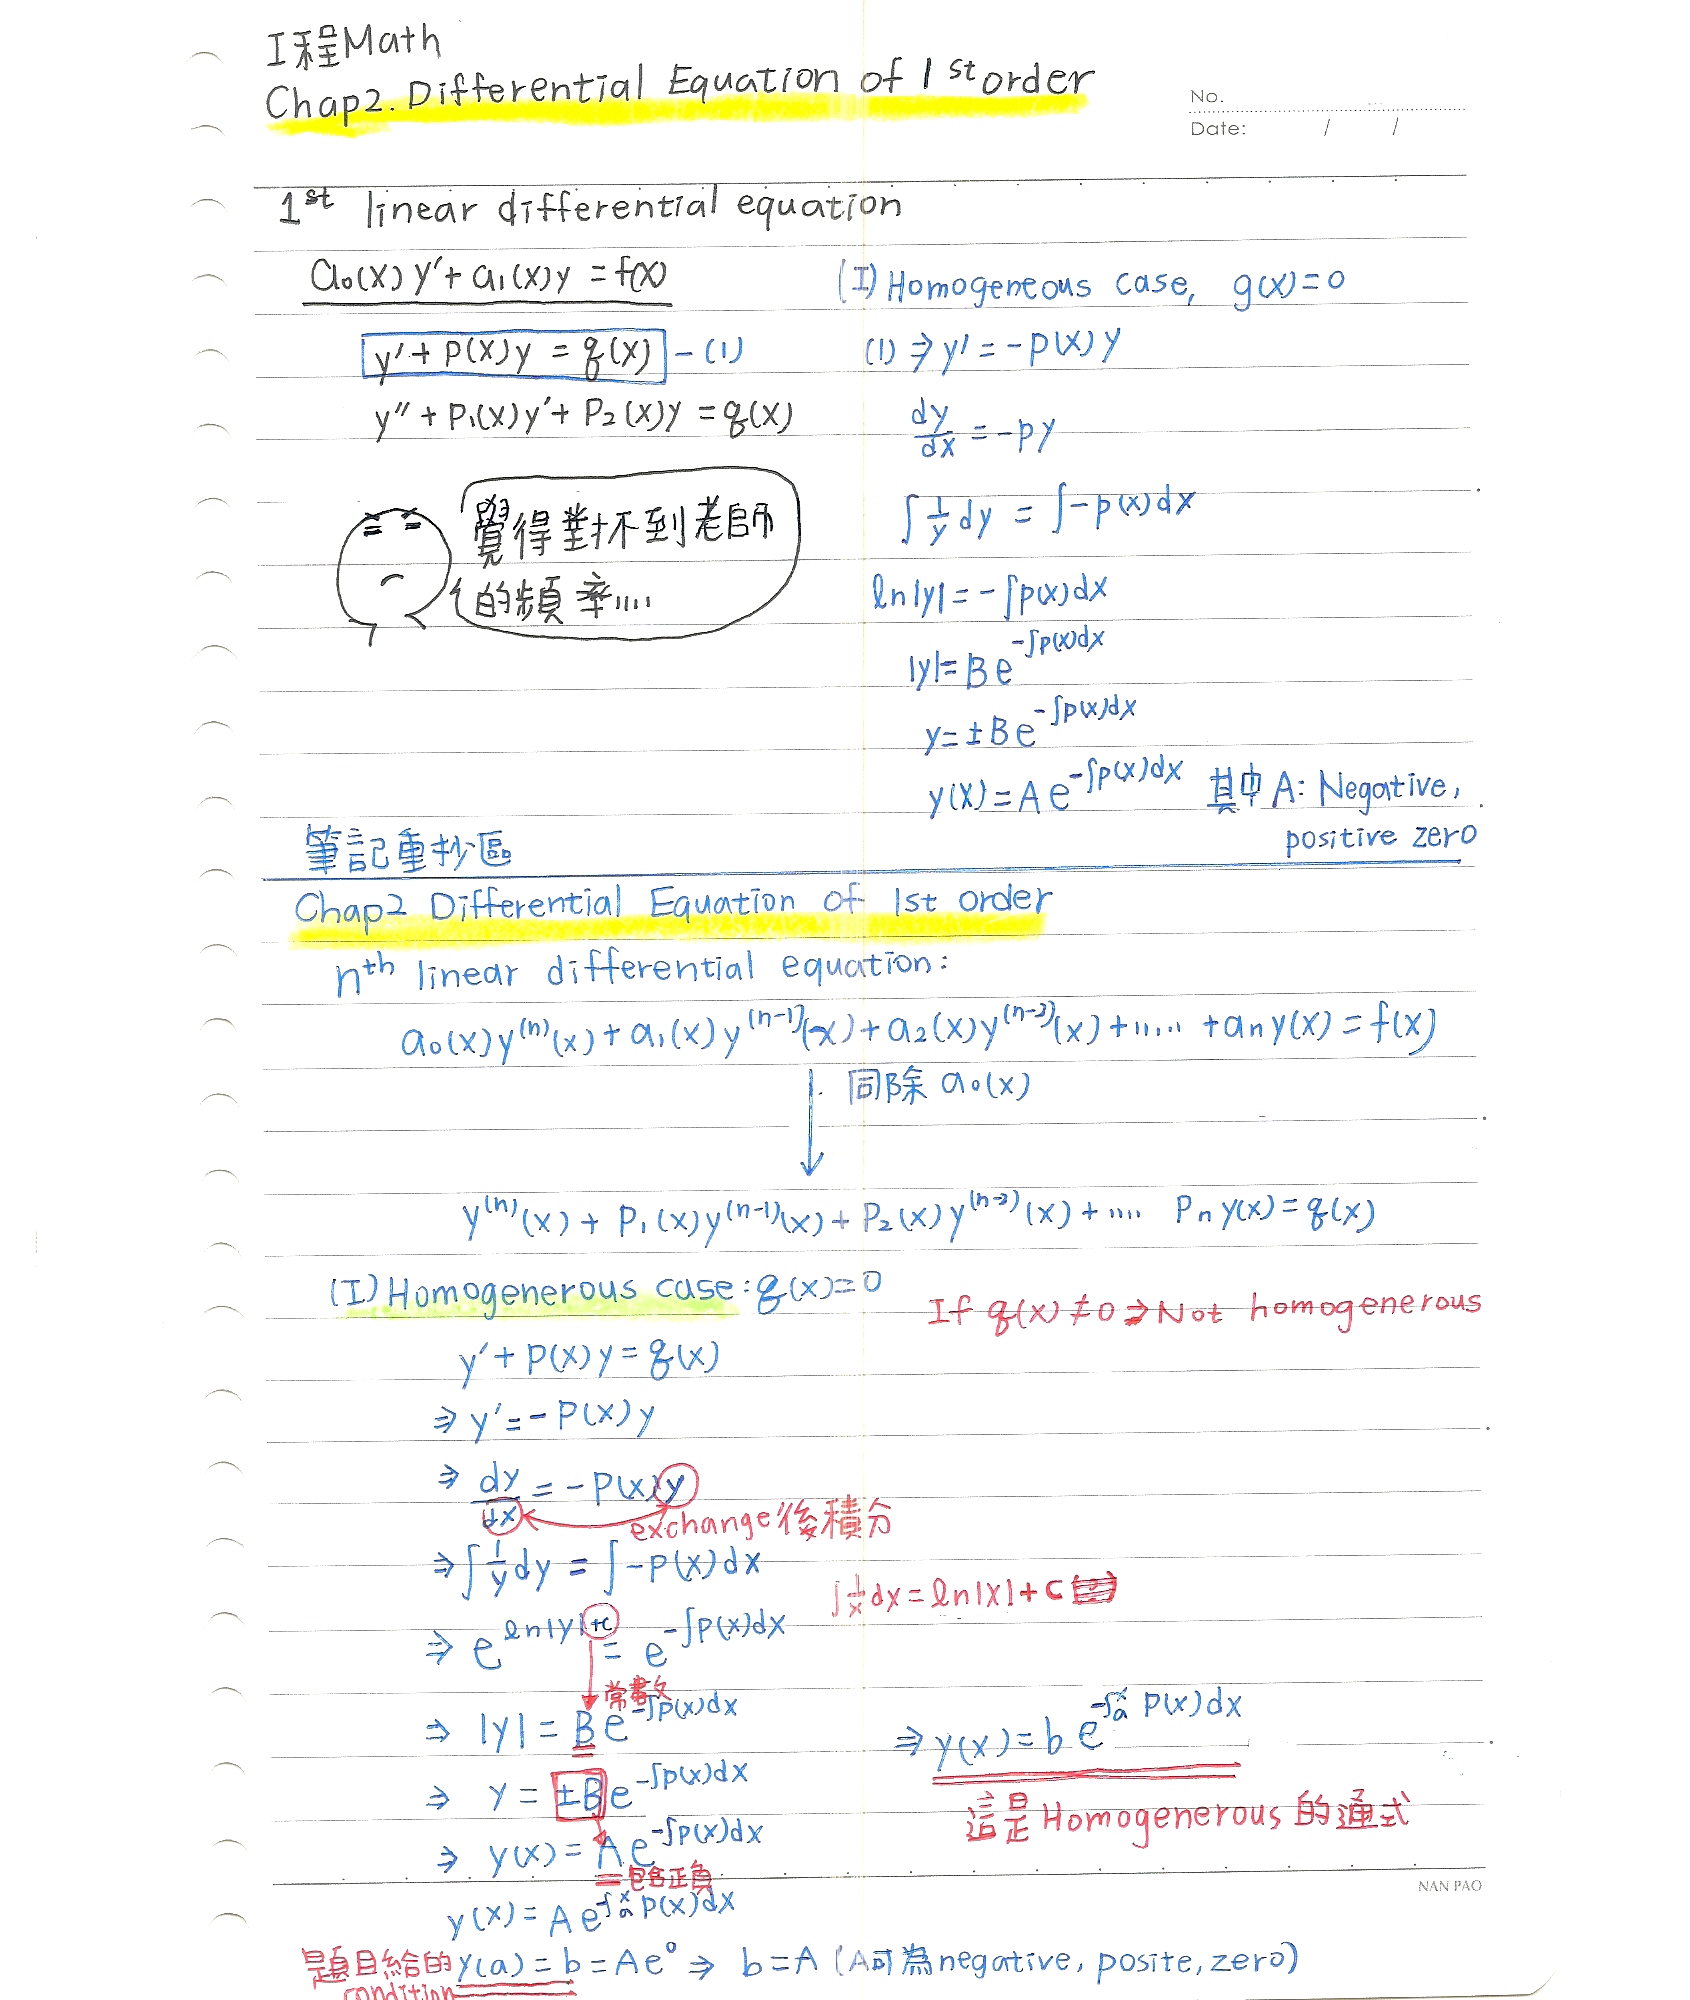 工程Math
Chap2. Differential Equation of 1st order
No.
Date: / /
1st linear differential equation
a₀(x)y'+a₁(x)y=f(x)
y'+p(x)y=q(x) -(1)
y''+p₁(x)y'+p₂(x)y=q(x)
覺得對不到老師
的頻率.....
(I) Homogeneous case, g(x)=0
(1)⇒y'=-p(x)y
dy/dx=-py
∫1/y dy = ∫-p(x)dx
ln|y|=-∫p(x)dx
|y|=Be^(-∫p(x)dx)
y=±Be^(-∫p(x)dx)
y(x)=Ae^(-∫p(x)dx) 其中A: Negative,
positive zero
筆記重抄區
Chap2 Differential Equation of 1st order
nth linear differential equation:
a₀(x)y^(n)(x)+a₁(x)y^(n-1)(x)+a₂(x)y^(n-2)(x)+..... +any(x)=f(x)
同除 a₀(x)
y^(n)(x)+P₁(x)y^(n-1)(x)+P₂(x)y^(n-2)(x)+.... Pny(x)=q(x)
(I) Homogenerous case: q(x)=0
If q(x)≠0⇒Not homogenerous
y'+P(x)y=q(x)
⇒y'=-P(x)y
⇒dy/dx=-P(x)y
exchange後積分
⇒∫1/y dy=∫-P(x)dx
∫1/x dx=ln|x|+c
⇒e^(ln|y|+c)=e^(-∫P(x)dx)
常數
⇒|y|=Be^(-∫P(x)dx)
⇒y=±Be^(-∫p(x)dx)
⇒y(x)=Ae^(-∫p(x)dx)
包含正負
y(x)=Ae^(-∫ₐˣp(x)dx)
⇒y(x)=be^(-∫ₐˣP(x)dx)
這是Homogenerous的通式
NAN PAO
題目給的y(a)=b=Ae⁰⇒b=A (A可為negative, posite, zero)
condition